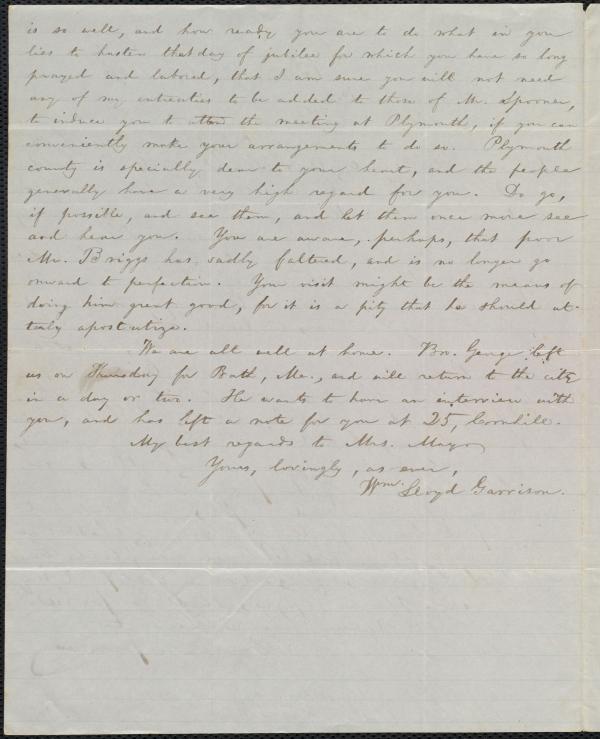 is so well, and how ready you are to do what in you
lies to hasten that day of jubilee for which you have so long
prayed and labored, that I am sure you will not need
any of my entreaties to be added to those of Mr. Spooner,
to induce you to attend the meeting at Plymouth, if you can
conveniently make your arrangements to do so. Plymouth
county is specially dear to your heart, and the people
generally have a very high regard for you. Do go,
if possible, and see them, and let them once more see
and hear you. You are aware, perhaps, that poor
Mr. Briggs has sadly faltered, and is no longer go
onward to perfection. Your visit might be the means of
doing him great good, for it is a pity that he should ut-
terly apostatize.
We are all well at home. Bro. George left
us on Thursday for Bath, Me., and will return to the city
in a day or two. He wants to have an interview with
you, and has left a note for you at 25, Cornhill.
My best regards to Mrs. May
Yours, lovingly, as ever,
Wm. Lloyd Garrison.